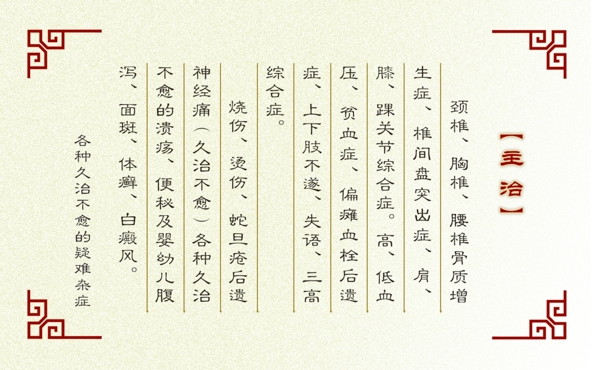 【主治】
颈椎、胸椎、腰椎骨质增
生症、椎间盘突出症、肩、
膝、踝关节综合症。高、低血
压、贫血症、偏瘫血栓后遗
症、上下肢不遂、失语、三高
综合症。
烧伤、烫伤、蛇旦疮后遗
神经痛（久治不愈）各种久治
不愈的溃疡、便秘及婴幼儿腹
泻、面斑、体癣、白癜风。
各种久治不愈的疑难杂症